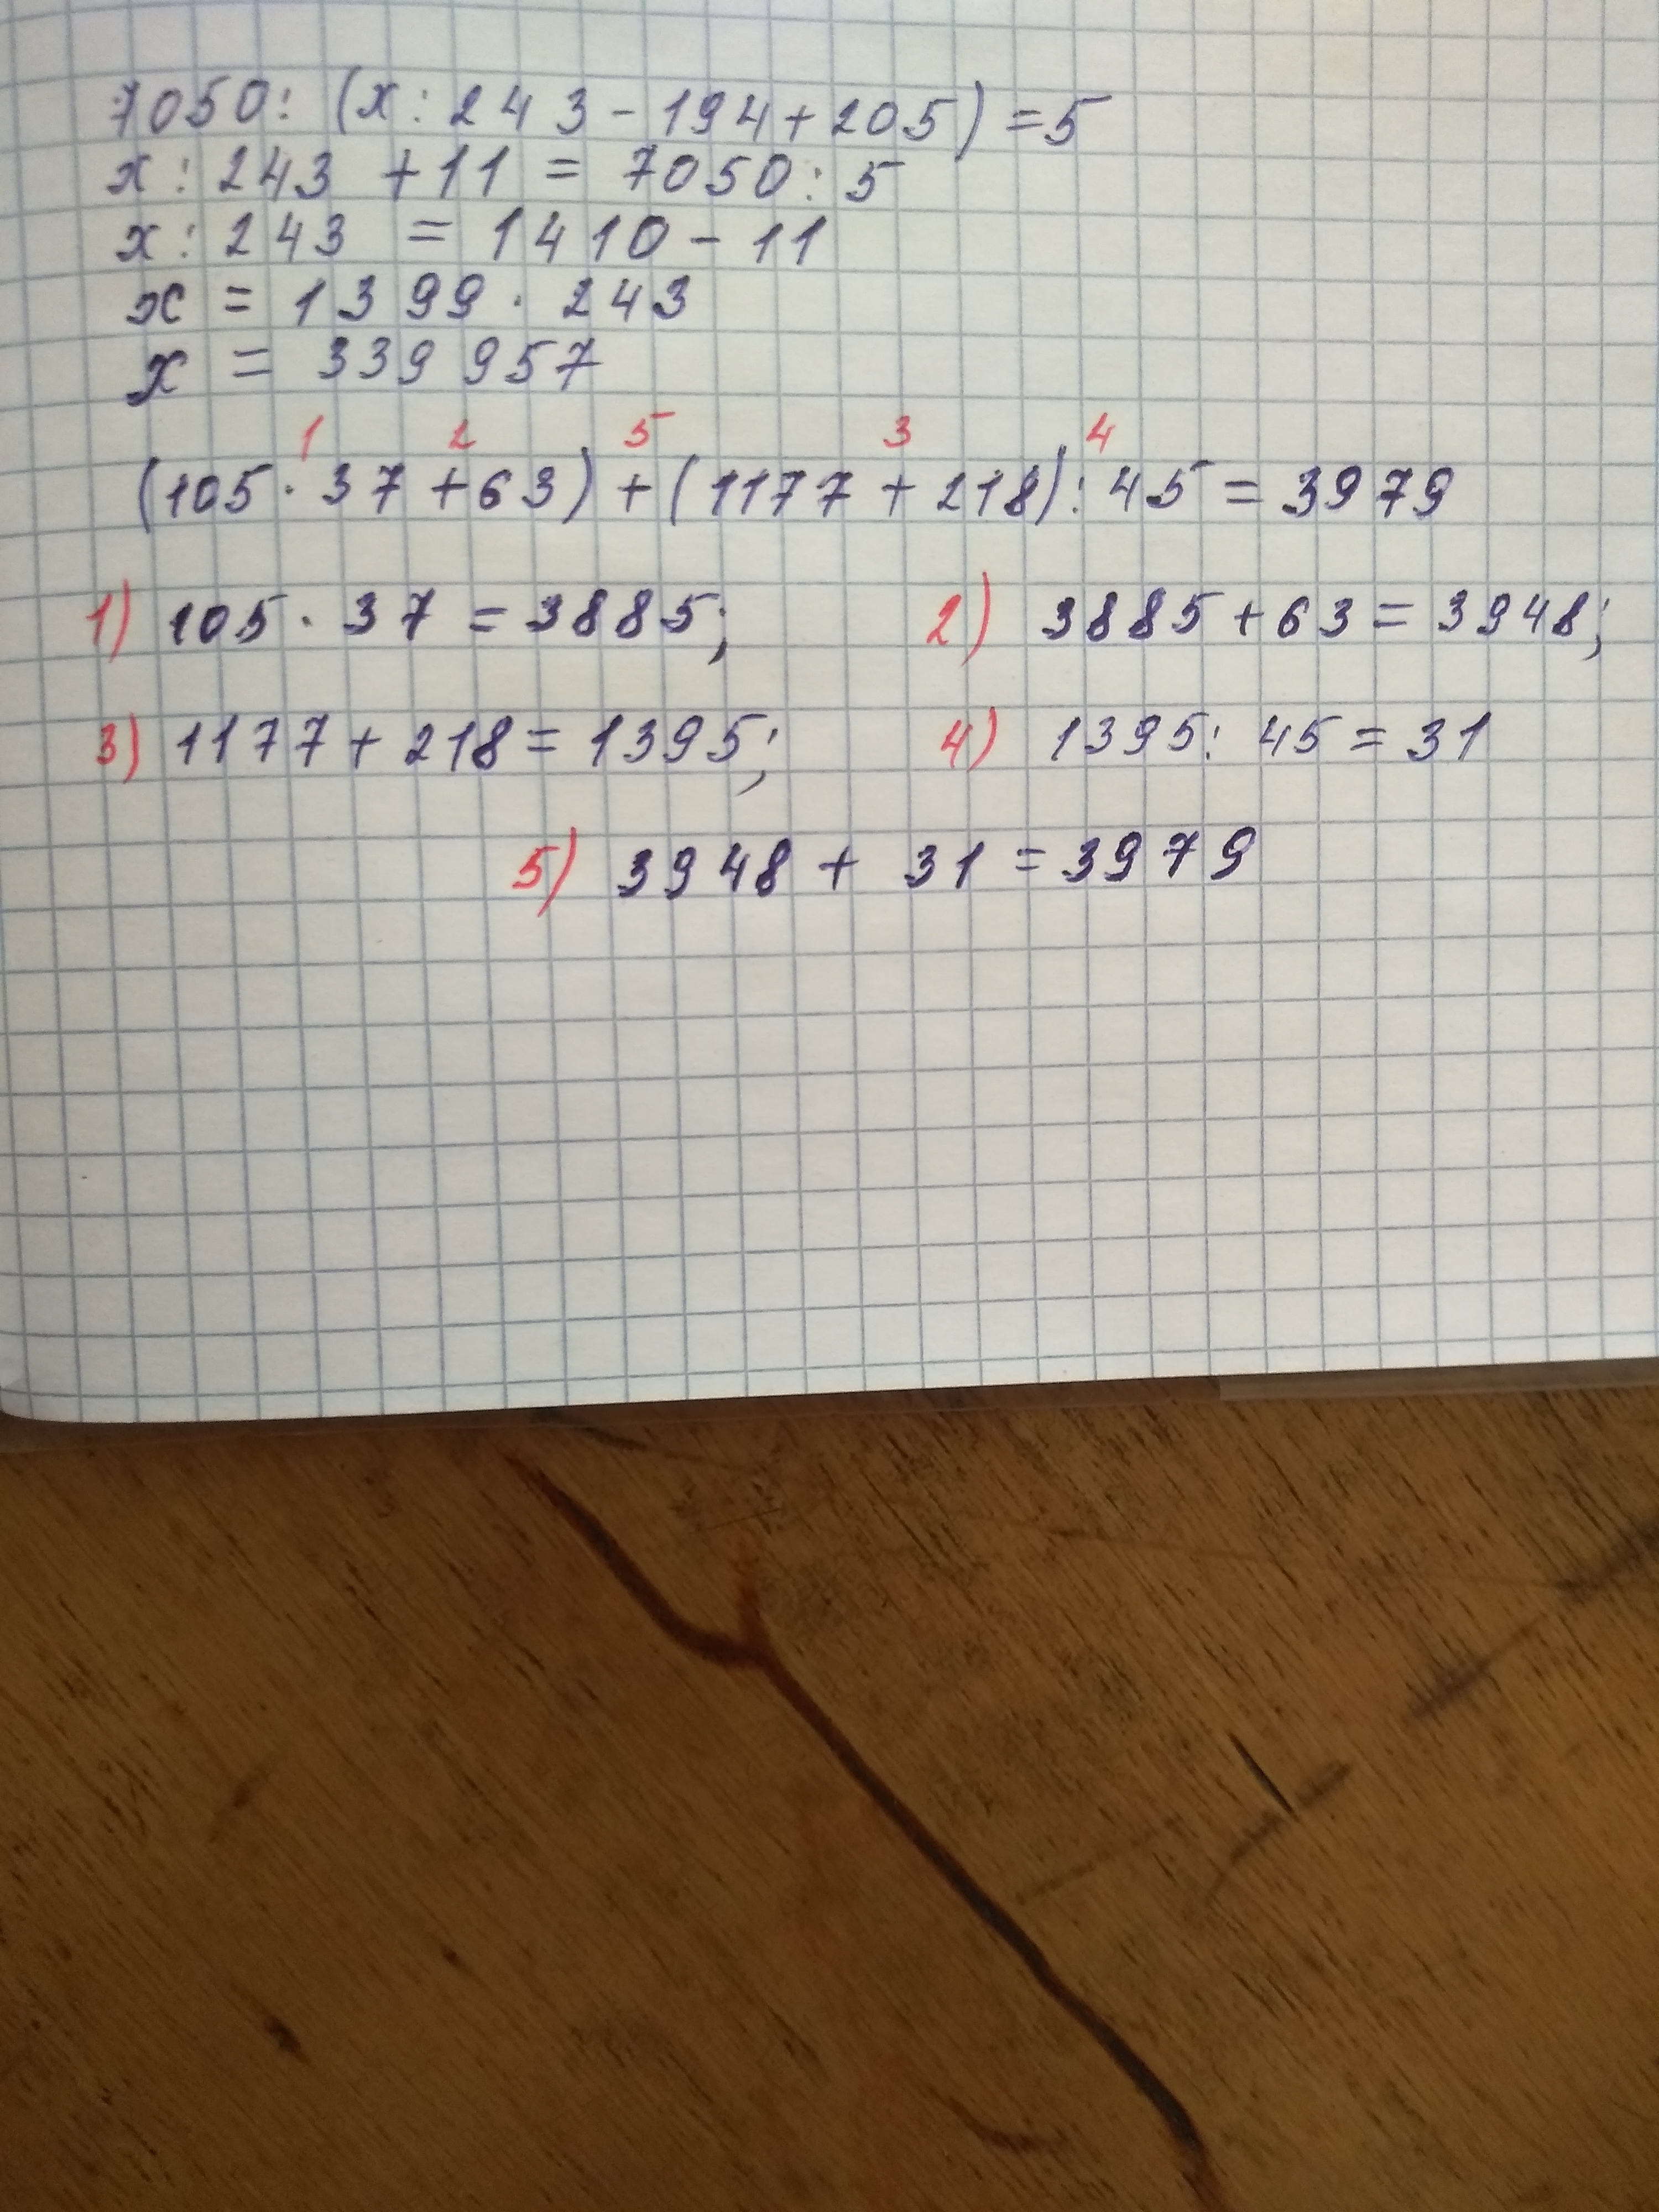 7050 : (x : 243 - 194 + 205) = 5
x : 243 + 11 = 7050 : 5
x : 243 = 1410 - 11
x = 1399 · 243
x = 339 957
1 2 5 3 4
(105 · 37 + 63) + (1177 + 218) : 45 = 3979
1) 105 · 37 = 3885; 2) 3885 + 63 = 3948;
3) 1177 + 218 = 1395; 4) 1395 : 45 = 31
5) 3948 + 31 = 3979